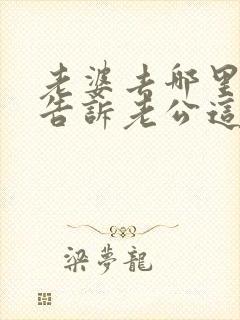 老婆去哪里
告訴老公這
梁夢龍